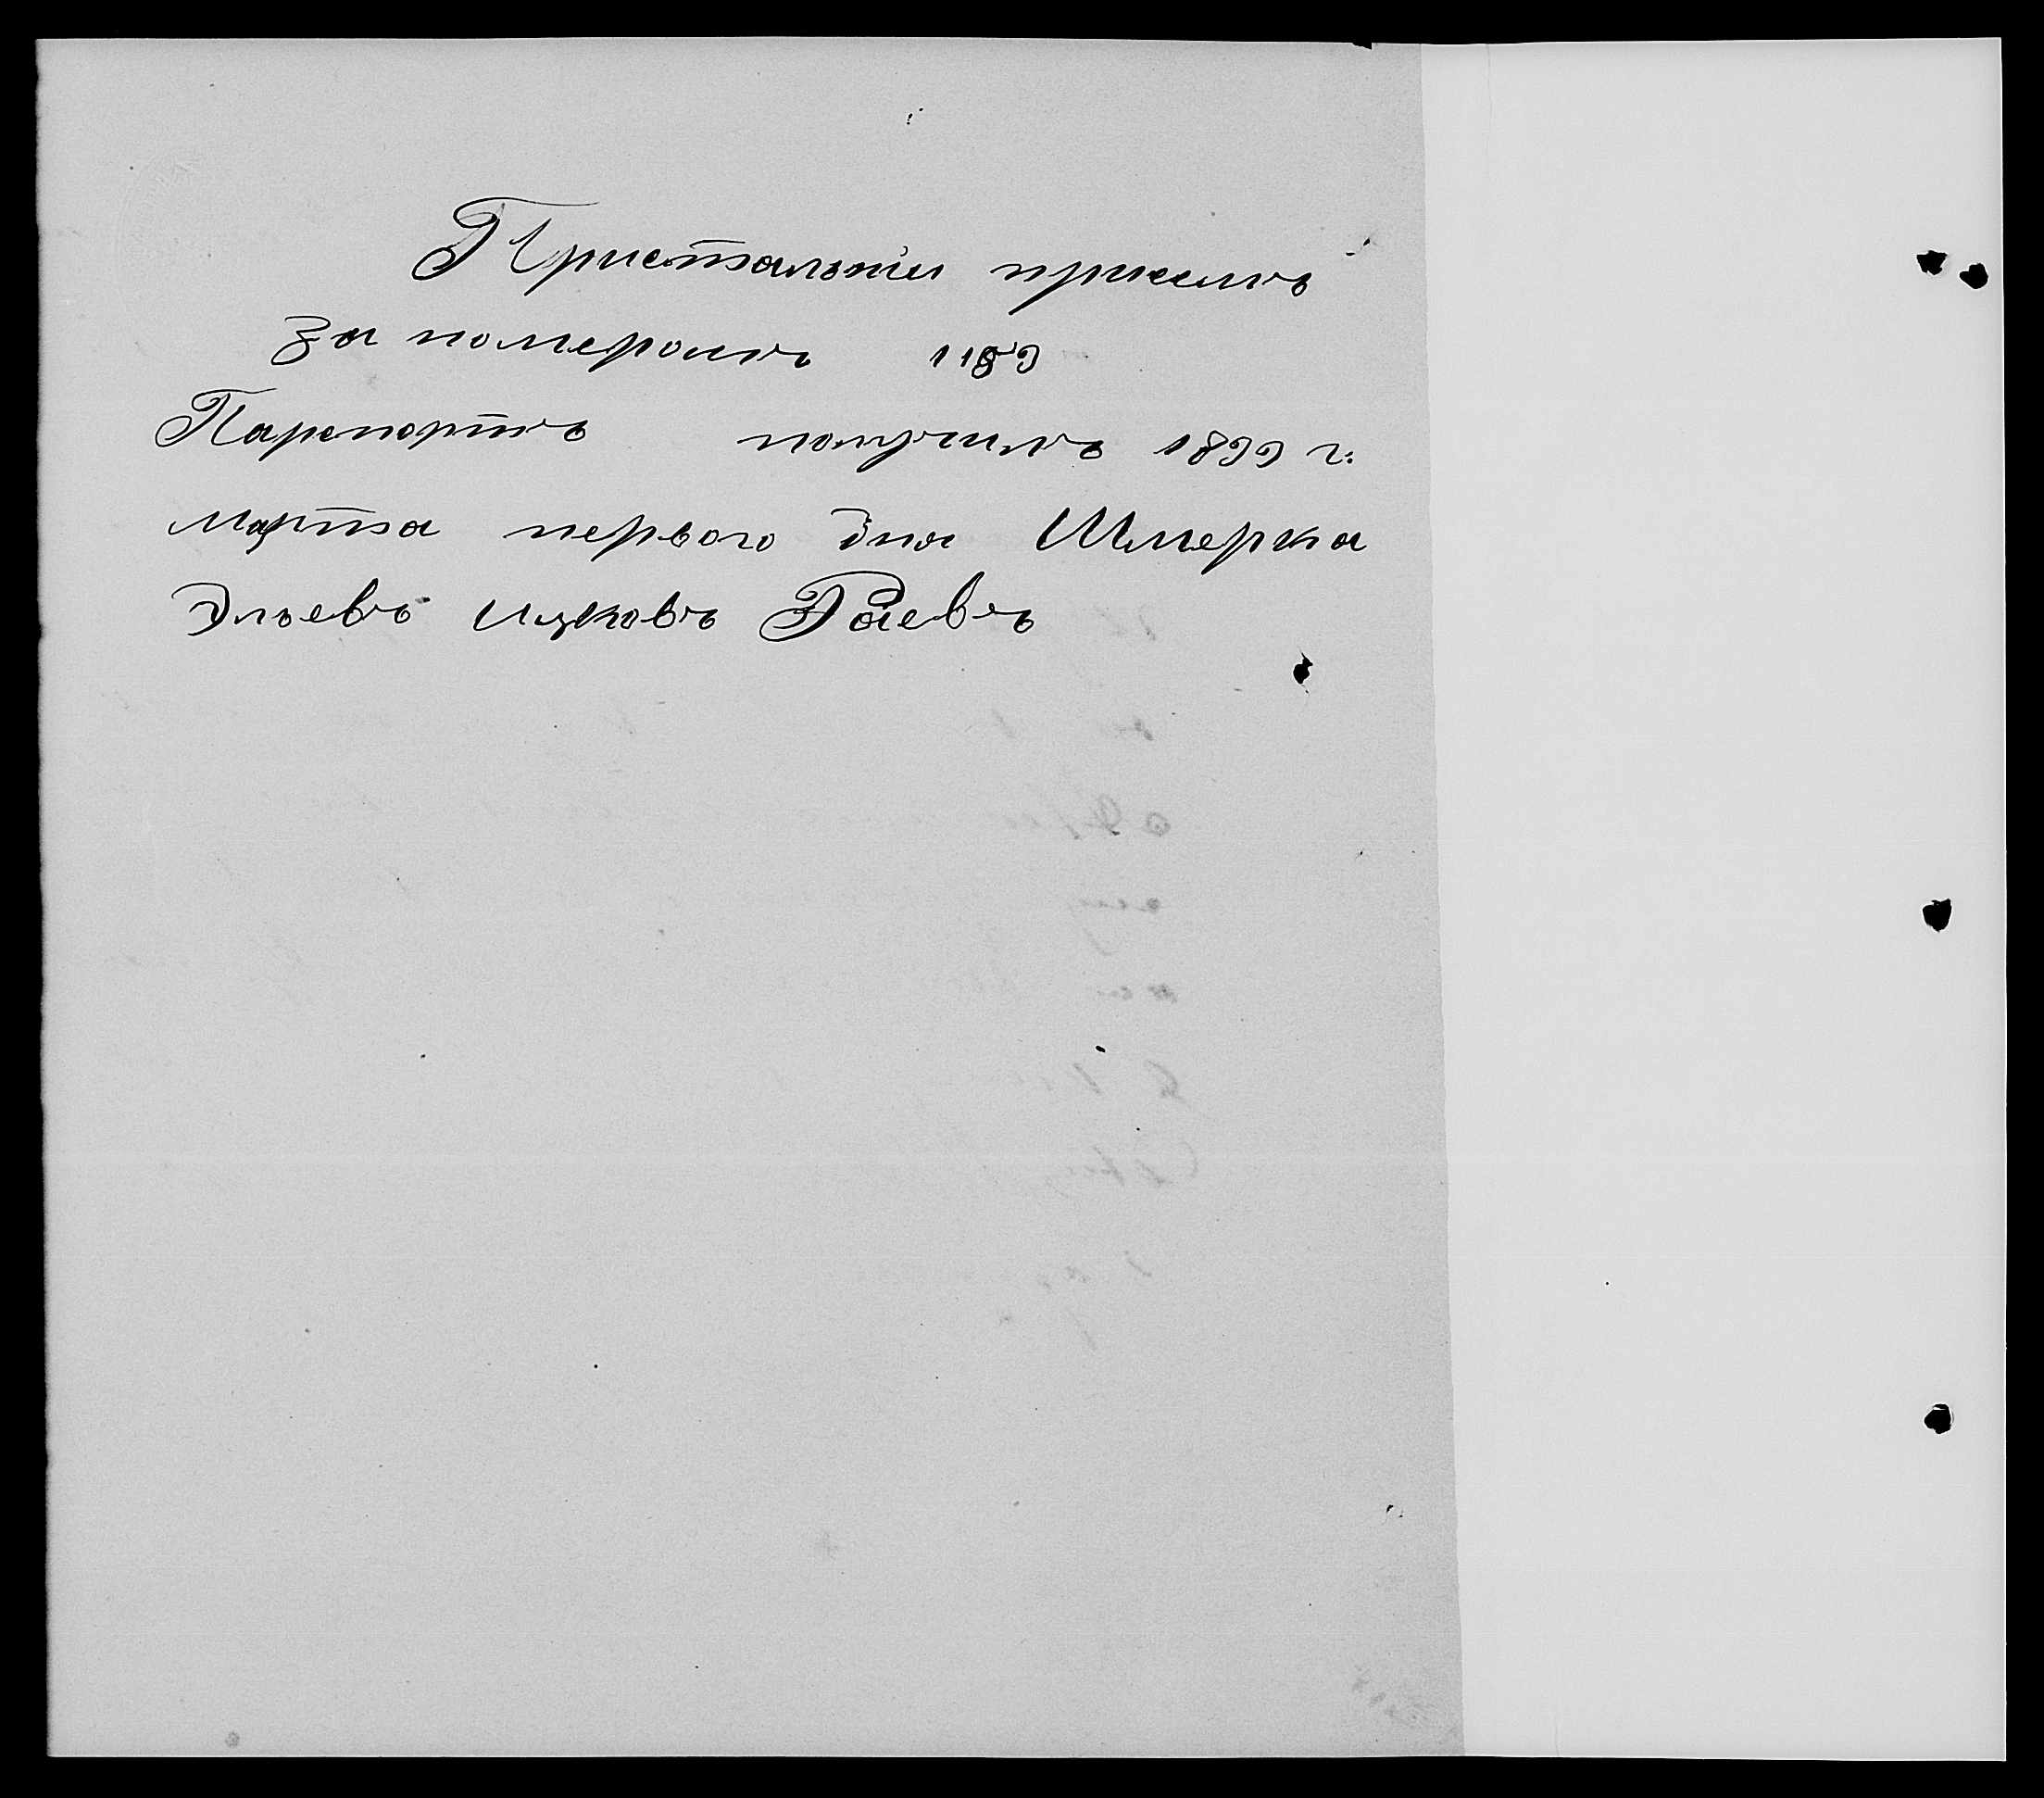 Приставъи присилъ
за номеромъ 1189
Парспортъ получилъ 1899 г.
Марта первого дня Шмерка
Эльевъ Ицковъ Раевъ